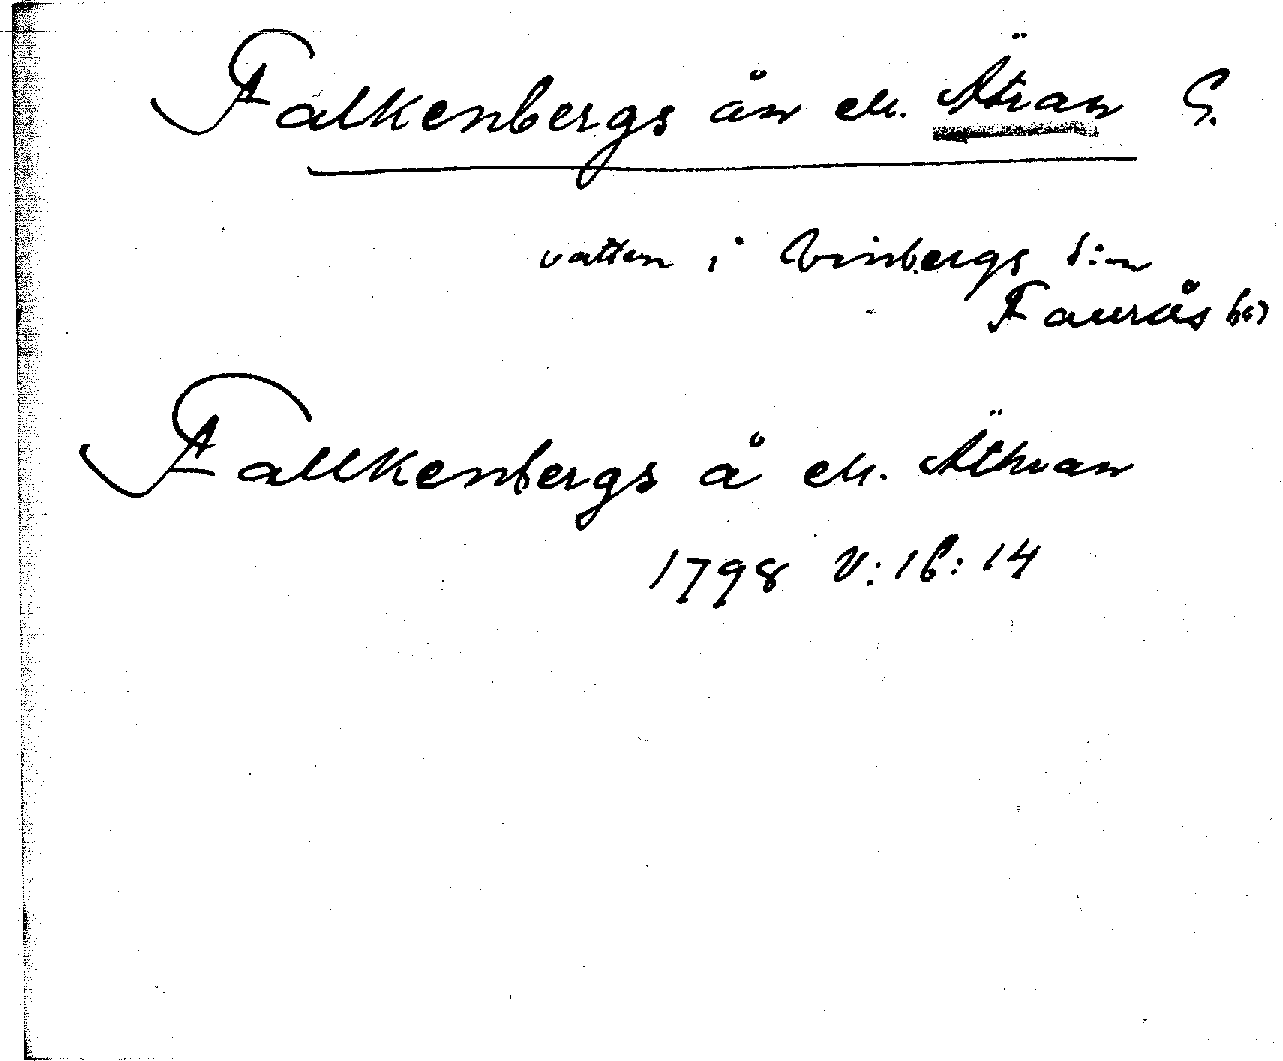 Falkenbergs ån ell. Ätran S.
vatten i Vinbergs s:n
Faurås hd
Fallkenbergs å ell. Äthran
1798 V:16:14